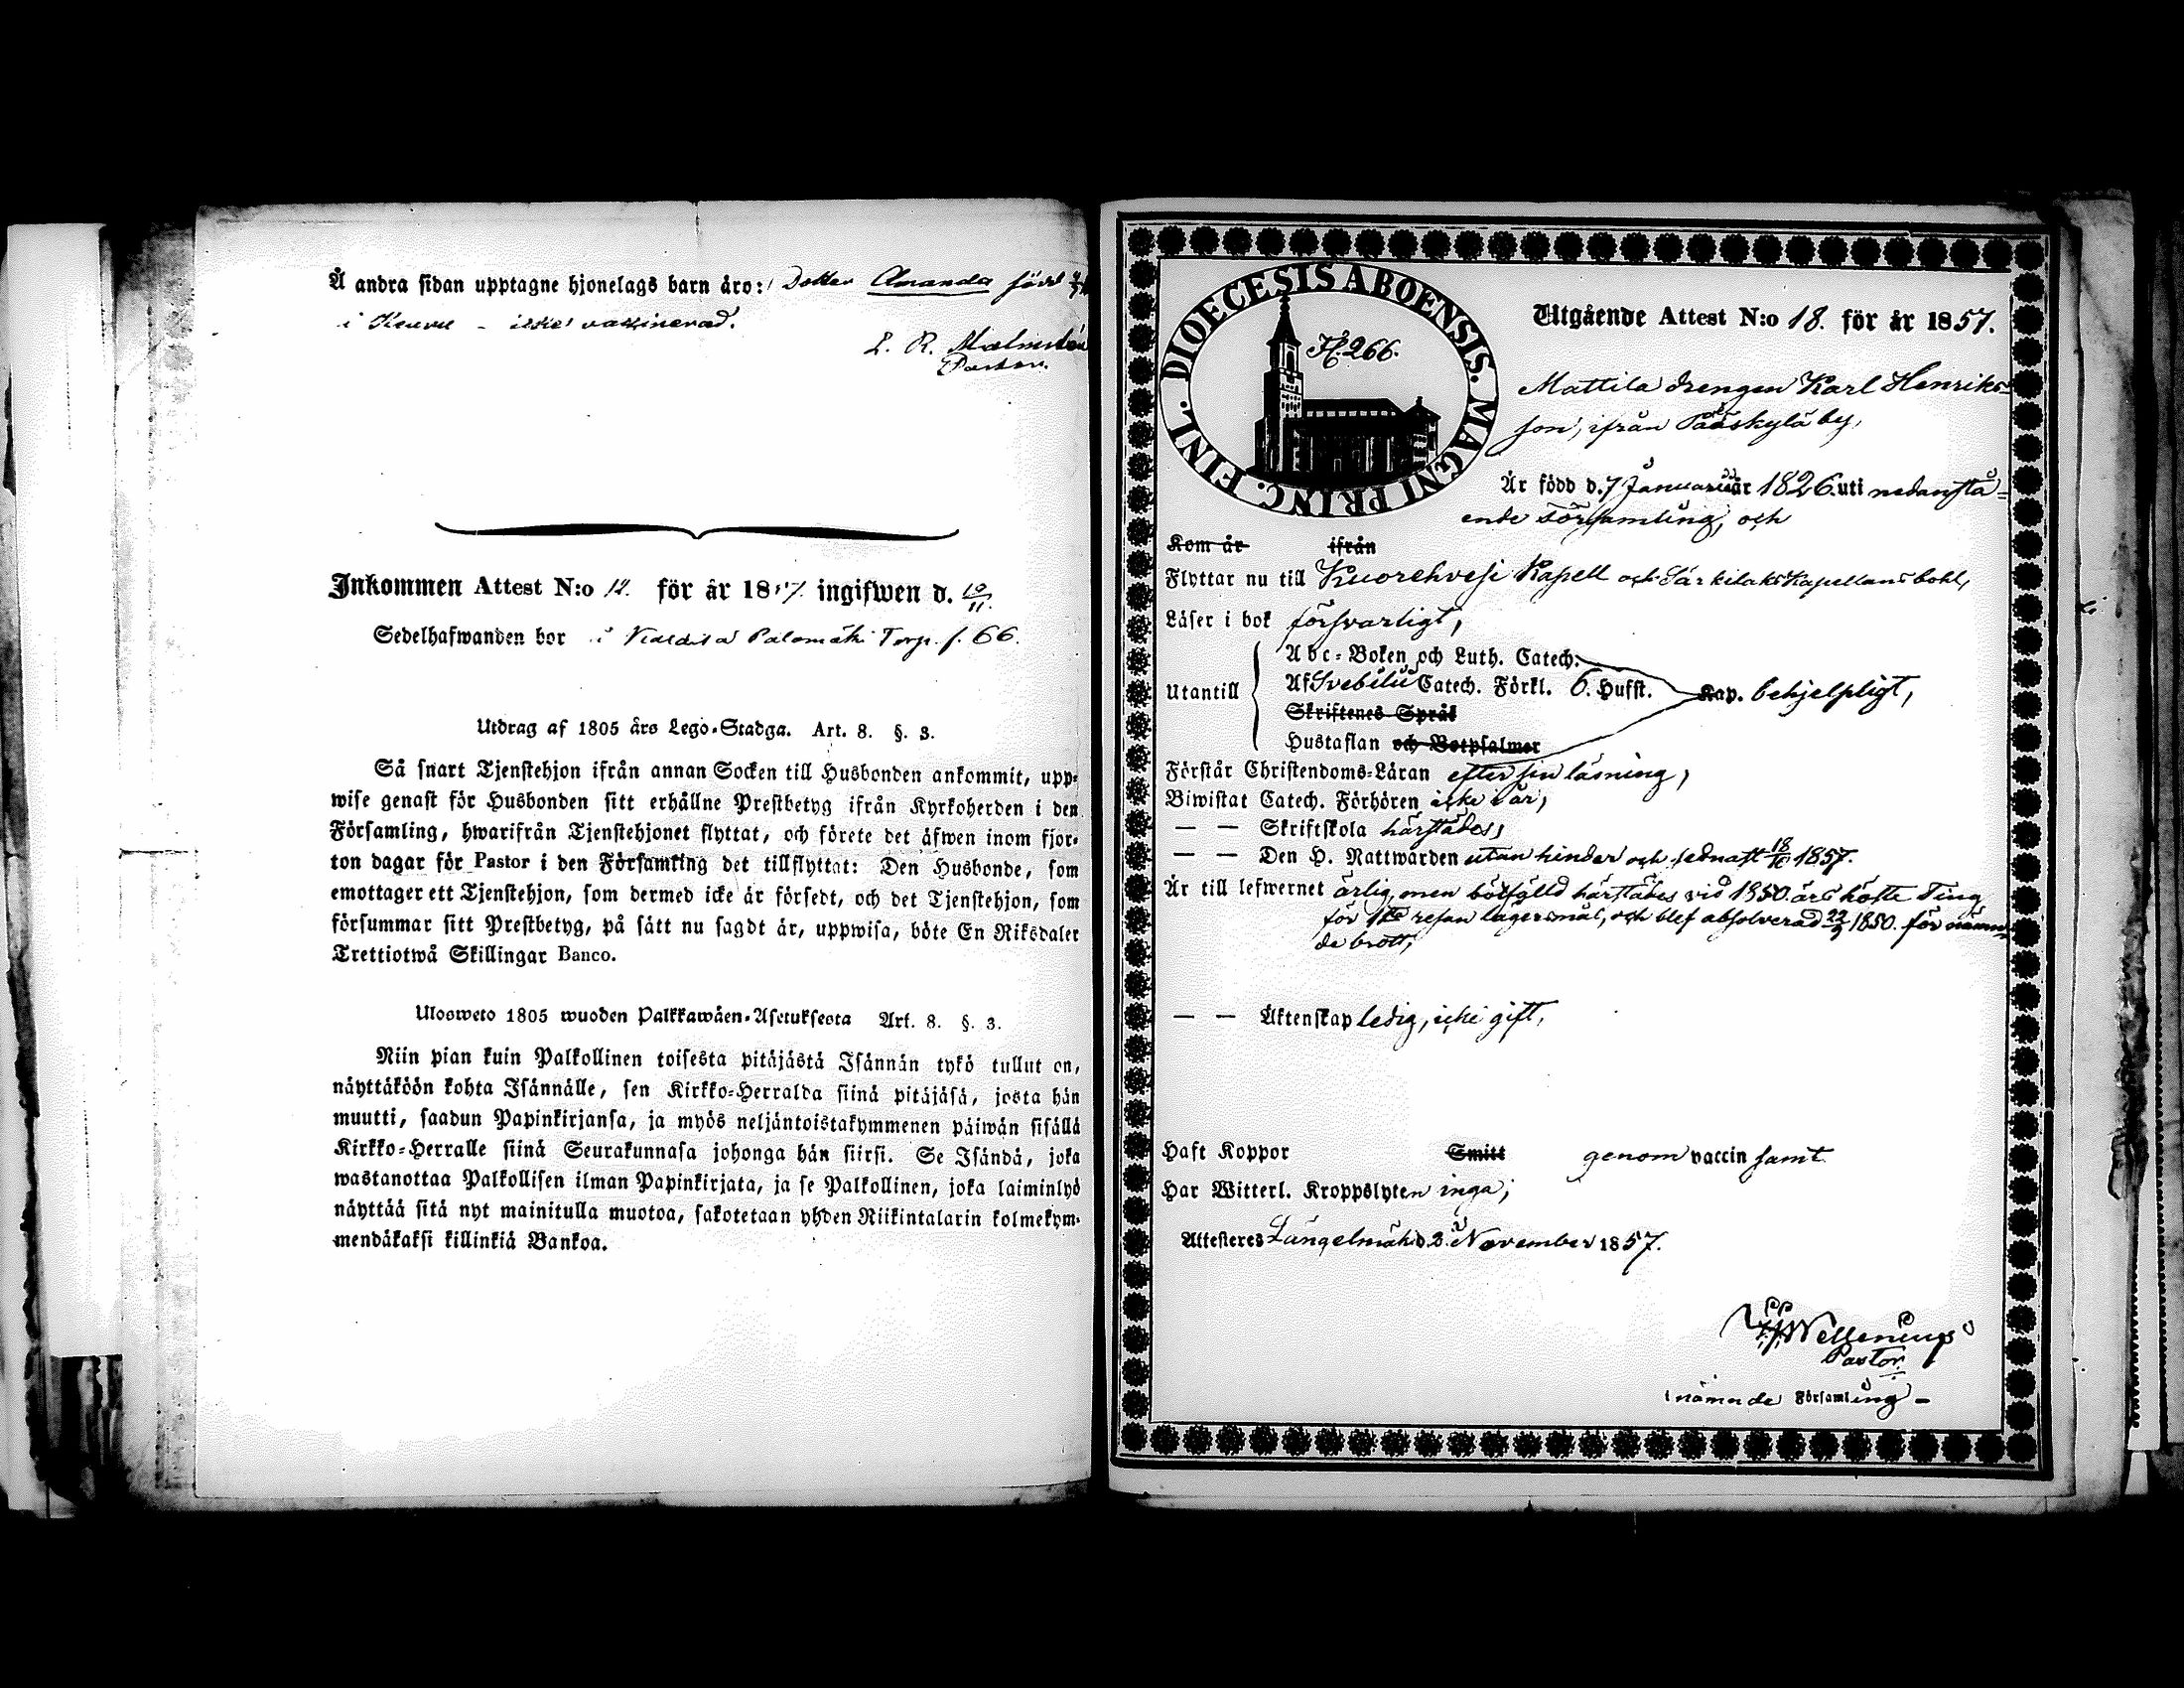 Å andra sidan upptagne hjonelags barn äro: Dotter Amanda född
i Keuru - icke vaccinerad.
L. R. Malmstén
Pastor.
Inkommen Attest N:o 12. för år 1857. ingifwen d. 10/11.
Sedelhafwanden bor i Palomäki Torp. f. 66.
Utdrag af 1805 års Lego-Stadga. Art. 8. §. 3.
Så snart Tjenstehjon ifrån annan Socken till Husbonden ankommit, upp-
wise genast för Husbonden sitt erhållne Prestbetyg ifrån Kyrkoherden i den
Församling, hwarifrån Tjenstehjonet flyttat, och förete det äfwen inom fjor-
ton dagar för Pastor i den Församling det tillflyttat: Den Husbonde, som
emottager ett Tjenstehjon, som dermed icke är försedt, och det Tjenstehjon, som
försummar sitt Prestbetyg, på sätt nu sagdt är, uppwisa, böte En Riksdaler
Trettiotwå Skillingar Banco.
Ulosweto 1805 wuoden Palkkawäen-Asetuksesta Art. 8. §. 3.
Niin pian kuin Palkollinen toisesta pitäjästä Isännän tykö tullut on,
näyttäköön kohta Isännälle, sen Kirkko-Herralda siinä pitäjäsä, josta hän
muutti, saadun Papinkirjansa, ja myös neljäntoistakymmenen päiwän sisällä
Kirkko-Herralle siinä Seurakunnasa johonga hän siirsi. Se Isändä, joka
wastanottaa Palkollisen ilman Papinkirjata, ja se Palkollinen, joka laiminlyö
näyttää sitä nyt mainitulla muotoa, sakotetaan yhden Riikintalarin kolmekym-
mendäkaksi killinkiä Bankoa.
DIOECESIS ABOENSIS. MAGNI PRINC. FINL.
H. 266.
Utgående Attest N:o 18. för år 1857.
Mattila drengen Karl Henriks-
son, ifrån Pääskylä by,
Är född d. 7 Januarii år 1826. uti nedanstå-
ende Församling, och
Kom år ifrån
Flyttar nu till Kuorehvesi Kapell och Särkilaks Kapellans bohl,
Läser i bok försvarligt,
Utantill
Abc-Boken och Luth. Catech.
Af Svebilii Catech. Förkl. 6. Hufst. Kap. behjelpligt,
Skriftenes Språk
Hustaflan och Botpsalmer
Förstår Christendoms-Läran efter sin läsning,
Biwistat Catech. Förhören icke i år,
— — Skriftskola härstädes,
— — Den H. Nattwarden utan hinder och sednast 18/10 1857.
Är till lefwernet ärlig, men bötfälld härstädes vid 1850. års höste Ting
för 1sta resan lägersmål, och blef absolverad 22/9 1850. för nämn-
de brott,
— — Äktenskap ledig, icke gift,
Haft Koppor Smitt genom vaccin samt
Har Witterl. Kroppslyten inga;
Attesteres Längelmäki d. 2. November 1857.
Wellenius
Pastor.
i nämnde Församling -